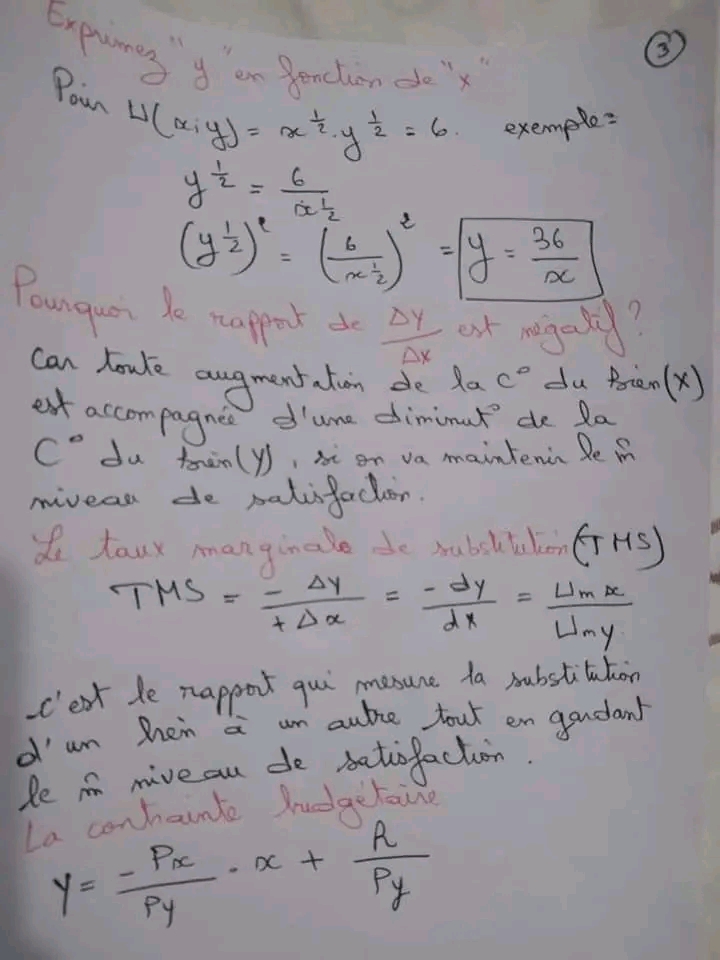 Exprimez "y" en fonction de "x"
③
Pour U(x;y) = x^1/2 . y^1/2 = 6. exemple =
y^1/2 = 6 / x^1/2
(y^1/2)² = (6 / x^1/2)² = y = 36 / x
Pourquoi le rapport de Δy / Δx est négatif?
Car toute augmentation de la C° du bien(X)
est accompagnée d'une diminut° de la
C° du bien(Y), si on va maintenir le m̂
niveau de satisfaction.
Le taux marginale de substitution (TMS)
TMS = - Δy / + Δx = - dy / dx = Um x / Um y
c'est le rapport qui mesure la substitution
d'un bien à un autre tout en gardant
le m̂ niveau de satisfaction.
La contrainte budgétaire
Y = - Px / Py . x + R / Py